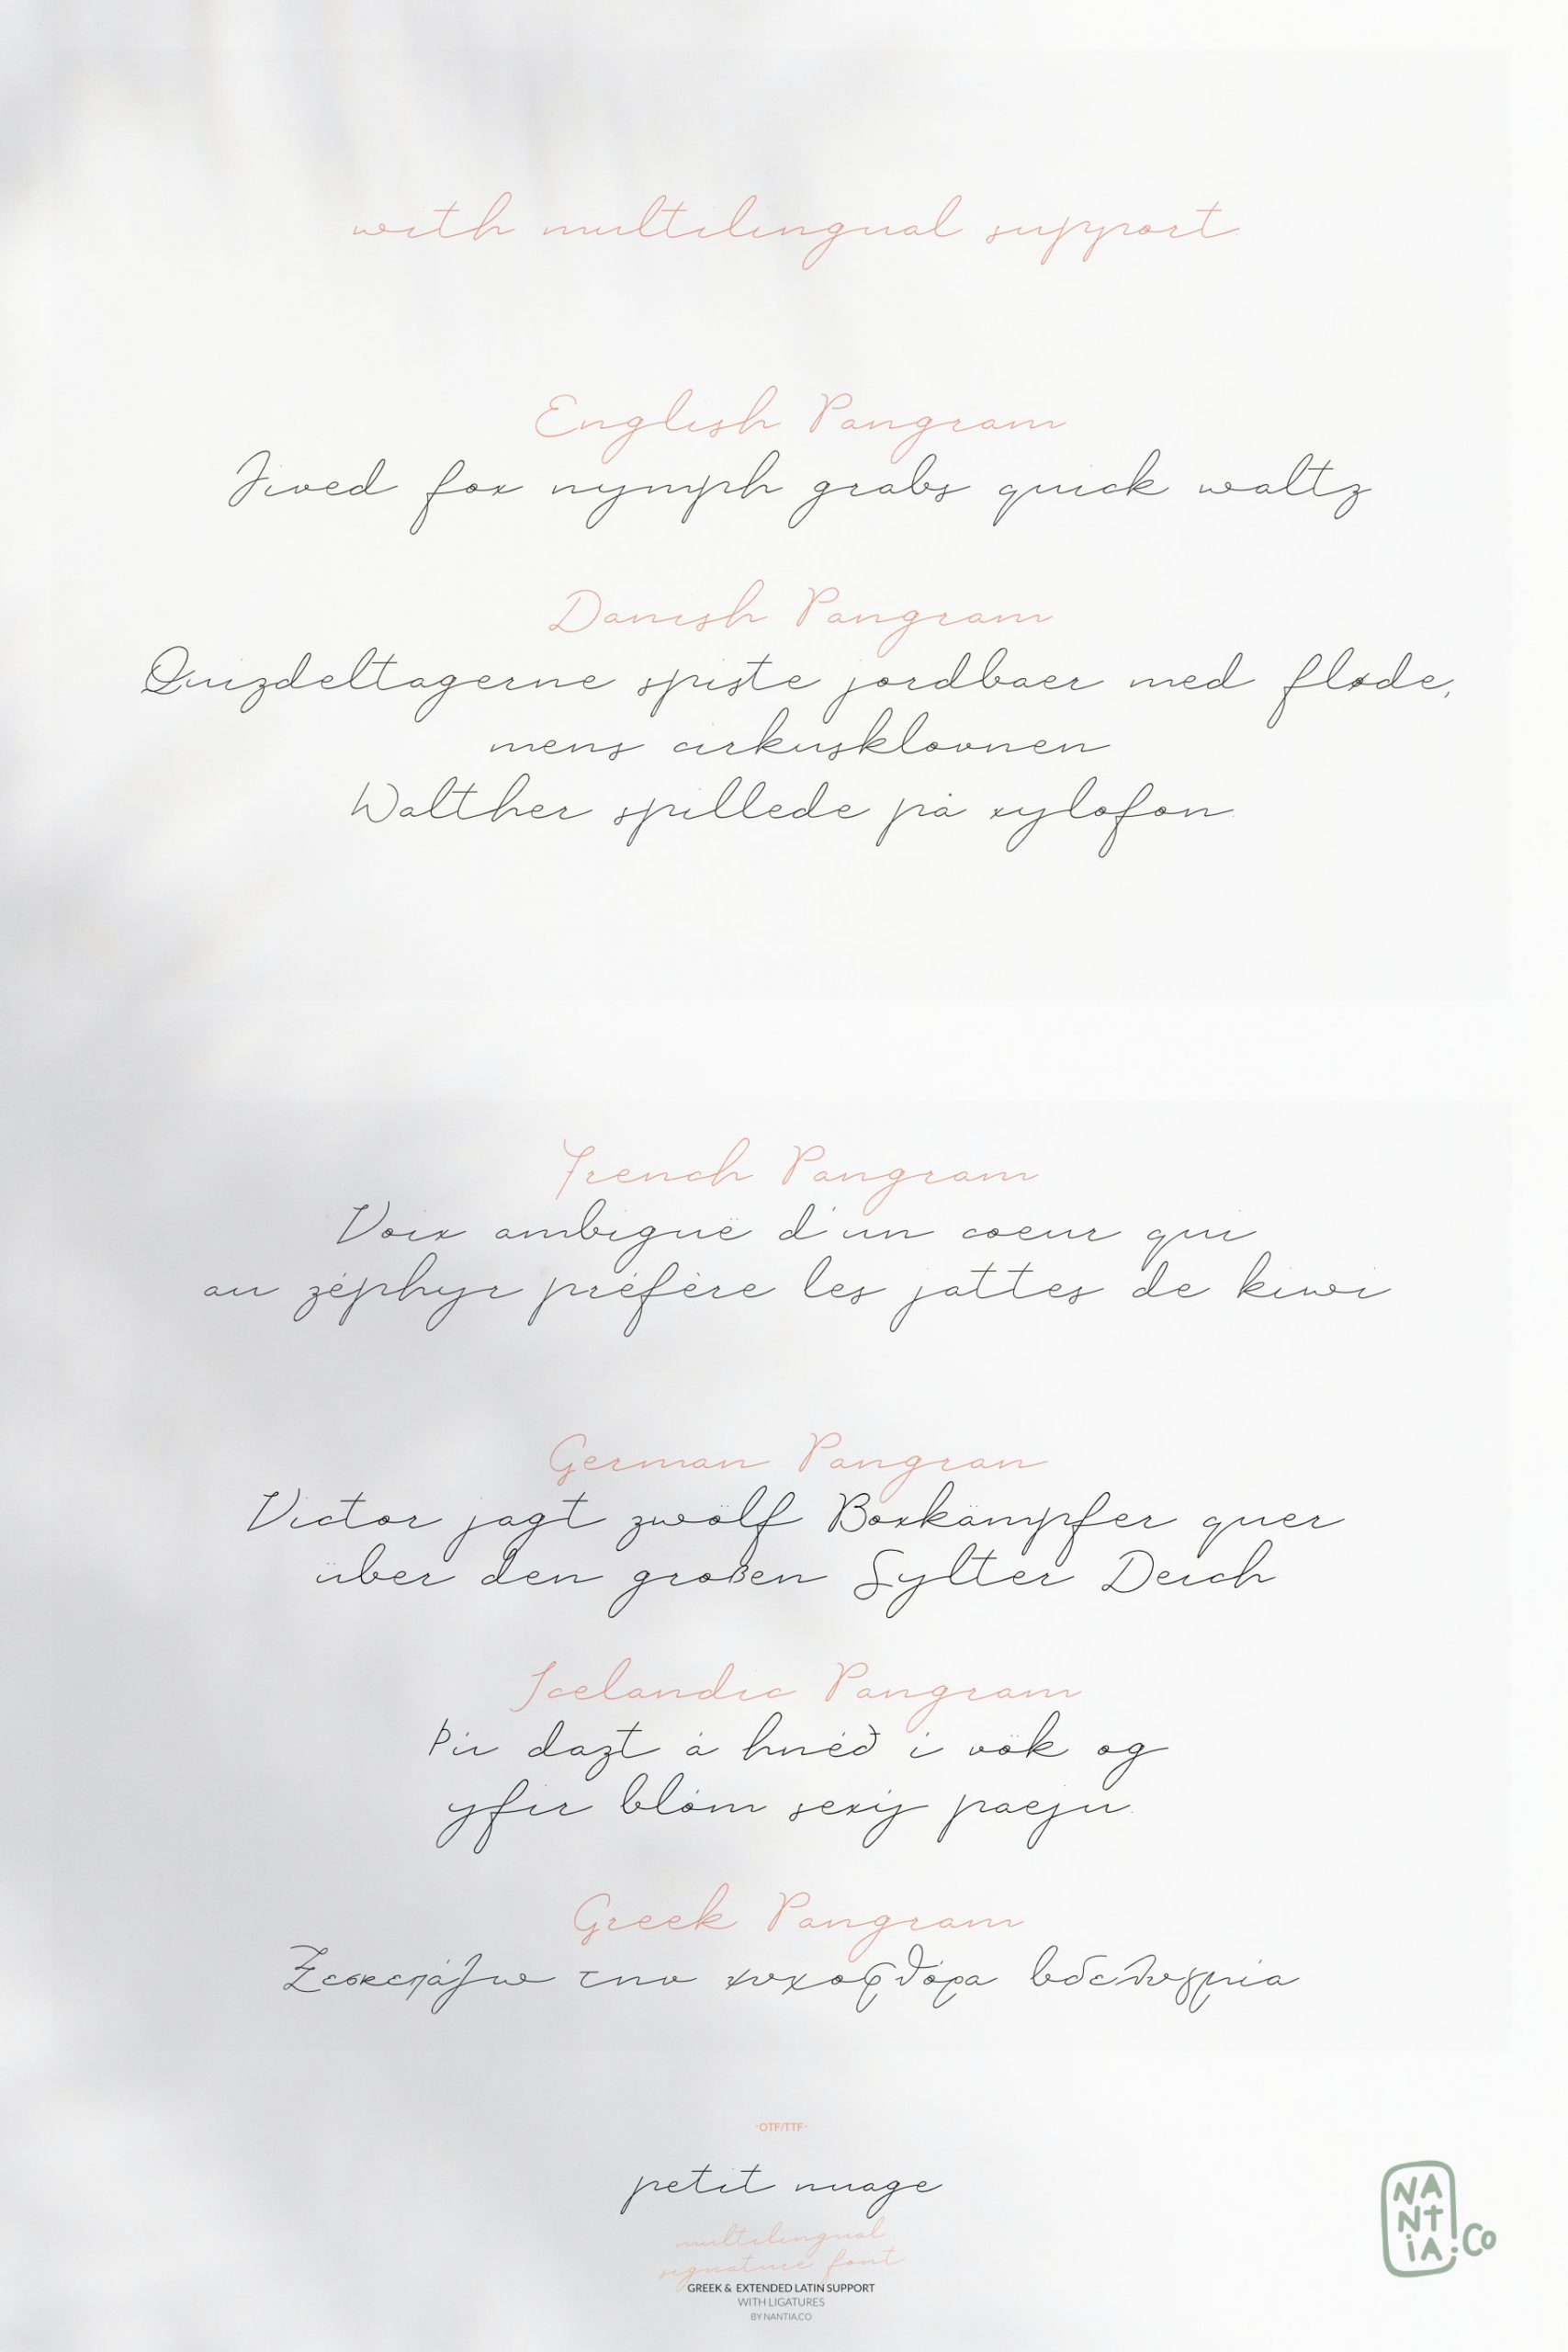 with multilingual support.
English Pangram
Jived fox nymph grabs quick waltz
Danish Pangram
Quizdeltagerne spiste jordbaer med fløde,
mens cirkusklovnen
Walther spillede på xylofon.
French Pangram
Voix ambiguë d'un coeur qui
au zéphyr préfère les jattes de kiwi
German Pangran
Victor jagt zwölf Boxkämpfer quer
über den großen Sylter Deich
Icelandic Pangram
Þir dazt á hnéð í vök og
yfir blóm sexý paeju.
Greek Pangram
Ξεσκεπάζω την ψυχοφθόρα βδελυγμία
·OTF/TTF·
petit nuage
multilingual
signature font
GREEK & EXTENDED LATIN SUPPORT
WITH LIGATURES
BY NANTIA.CO
NANTIA.Co